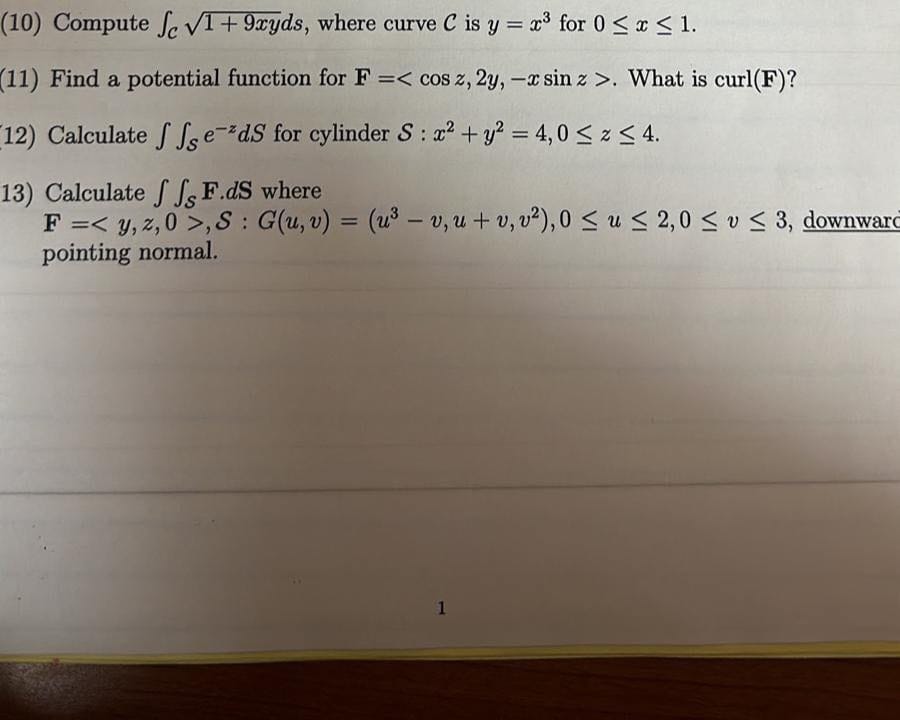 (10) Compute ∫_C √(1 + 9xy)ds, where curve C is y = x³ for 0 ≤ x ≤ 1.
(11) Find a potential function for F =< cos z, 2y, −x sin z >. What is curl(F)?
12) Calculate ∫ ∫_S e^{−z}dS for cylinder S : x² + y² = 4, 0 ≤ z ≤ 4.
13) Calculate ∫ ∫_S F.dS where
F =< y, z, 0 >, S : G(u, v) = (u³ − v, u + v, v²), 0 ≤ u ≤ 2, 0 ≤ v ≤ 3, downward
pointing normal.
1